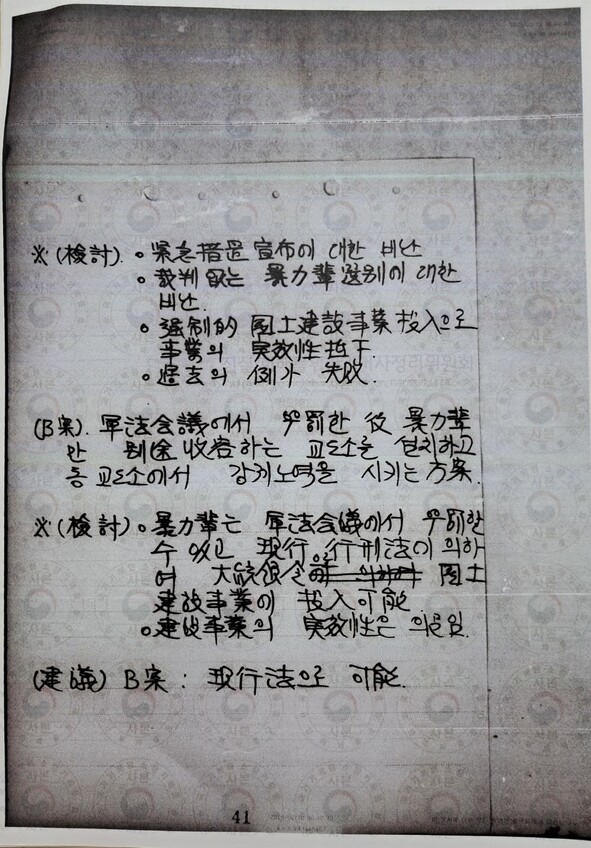 ※(檢討). ○ 緊急措置 宣布에 대한 비난
○ 裁判 없는 暴力輩 選別에 대한
비난.
○ 强制的 国土建設事業 投入으로
事業의 実效性 拉下.
○ 過去의 例가 失敗.
(B案). 軍法会議에서 処罰한 後 暴力輩
만 別途 收容하는 교도소를 설치하고
동 교도소에서 강제노역을 시키는 方案.
※(檢討) ○ 暴力輩는 軍法会議에서 処罰할
수 있고 現行 行刑法에 의하
여 大統領令 国土
建設事業에 投入可能.
○ 建設事業의 実效性은 의문임.
(建議) B案 : 現行法으로 可能.
41